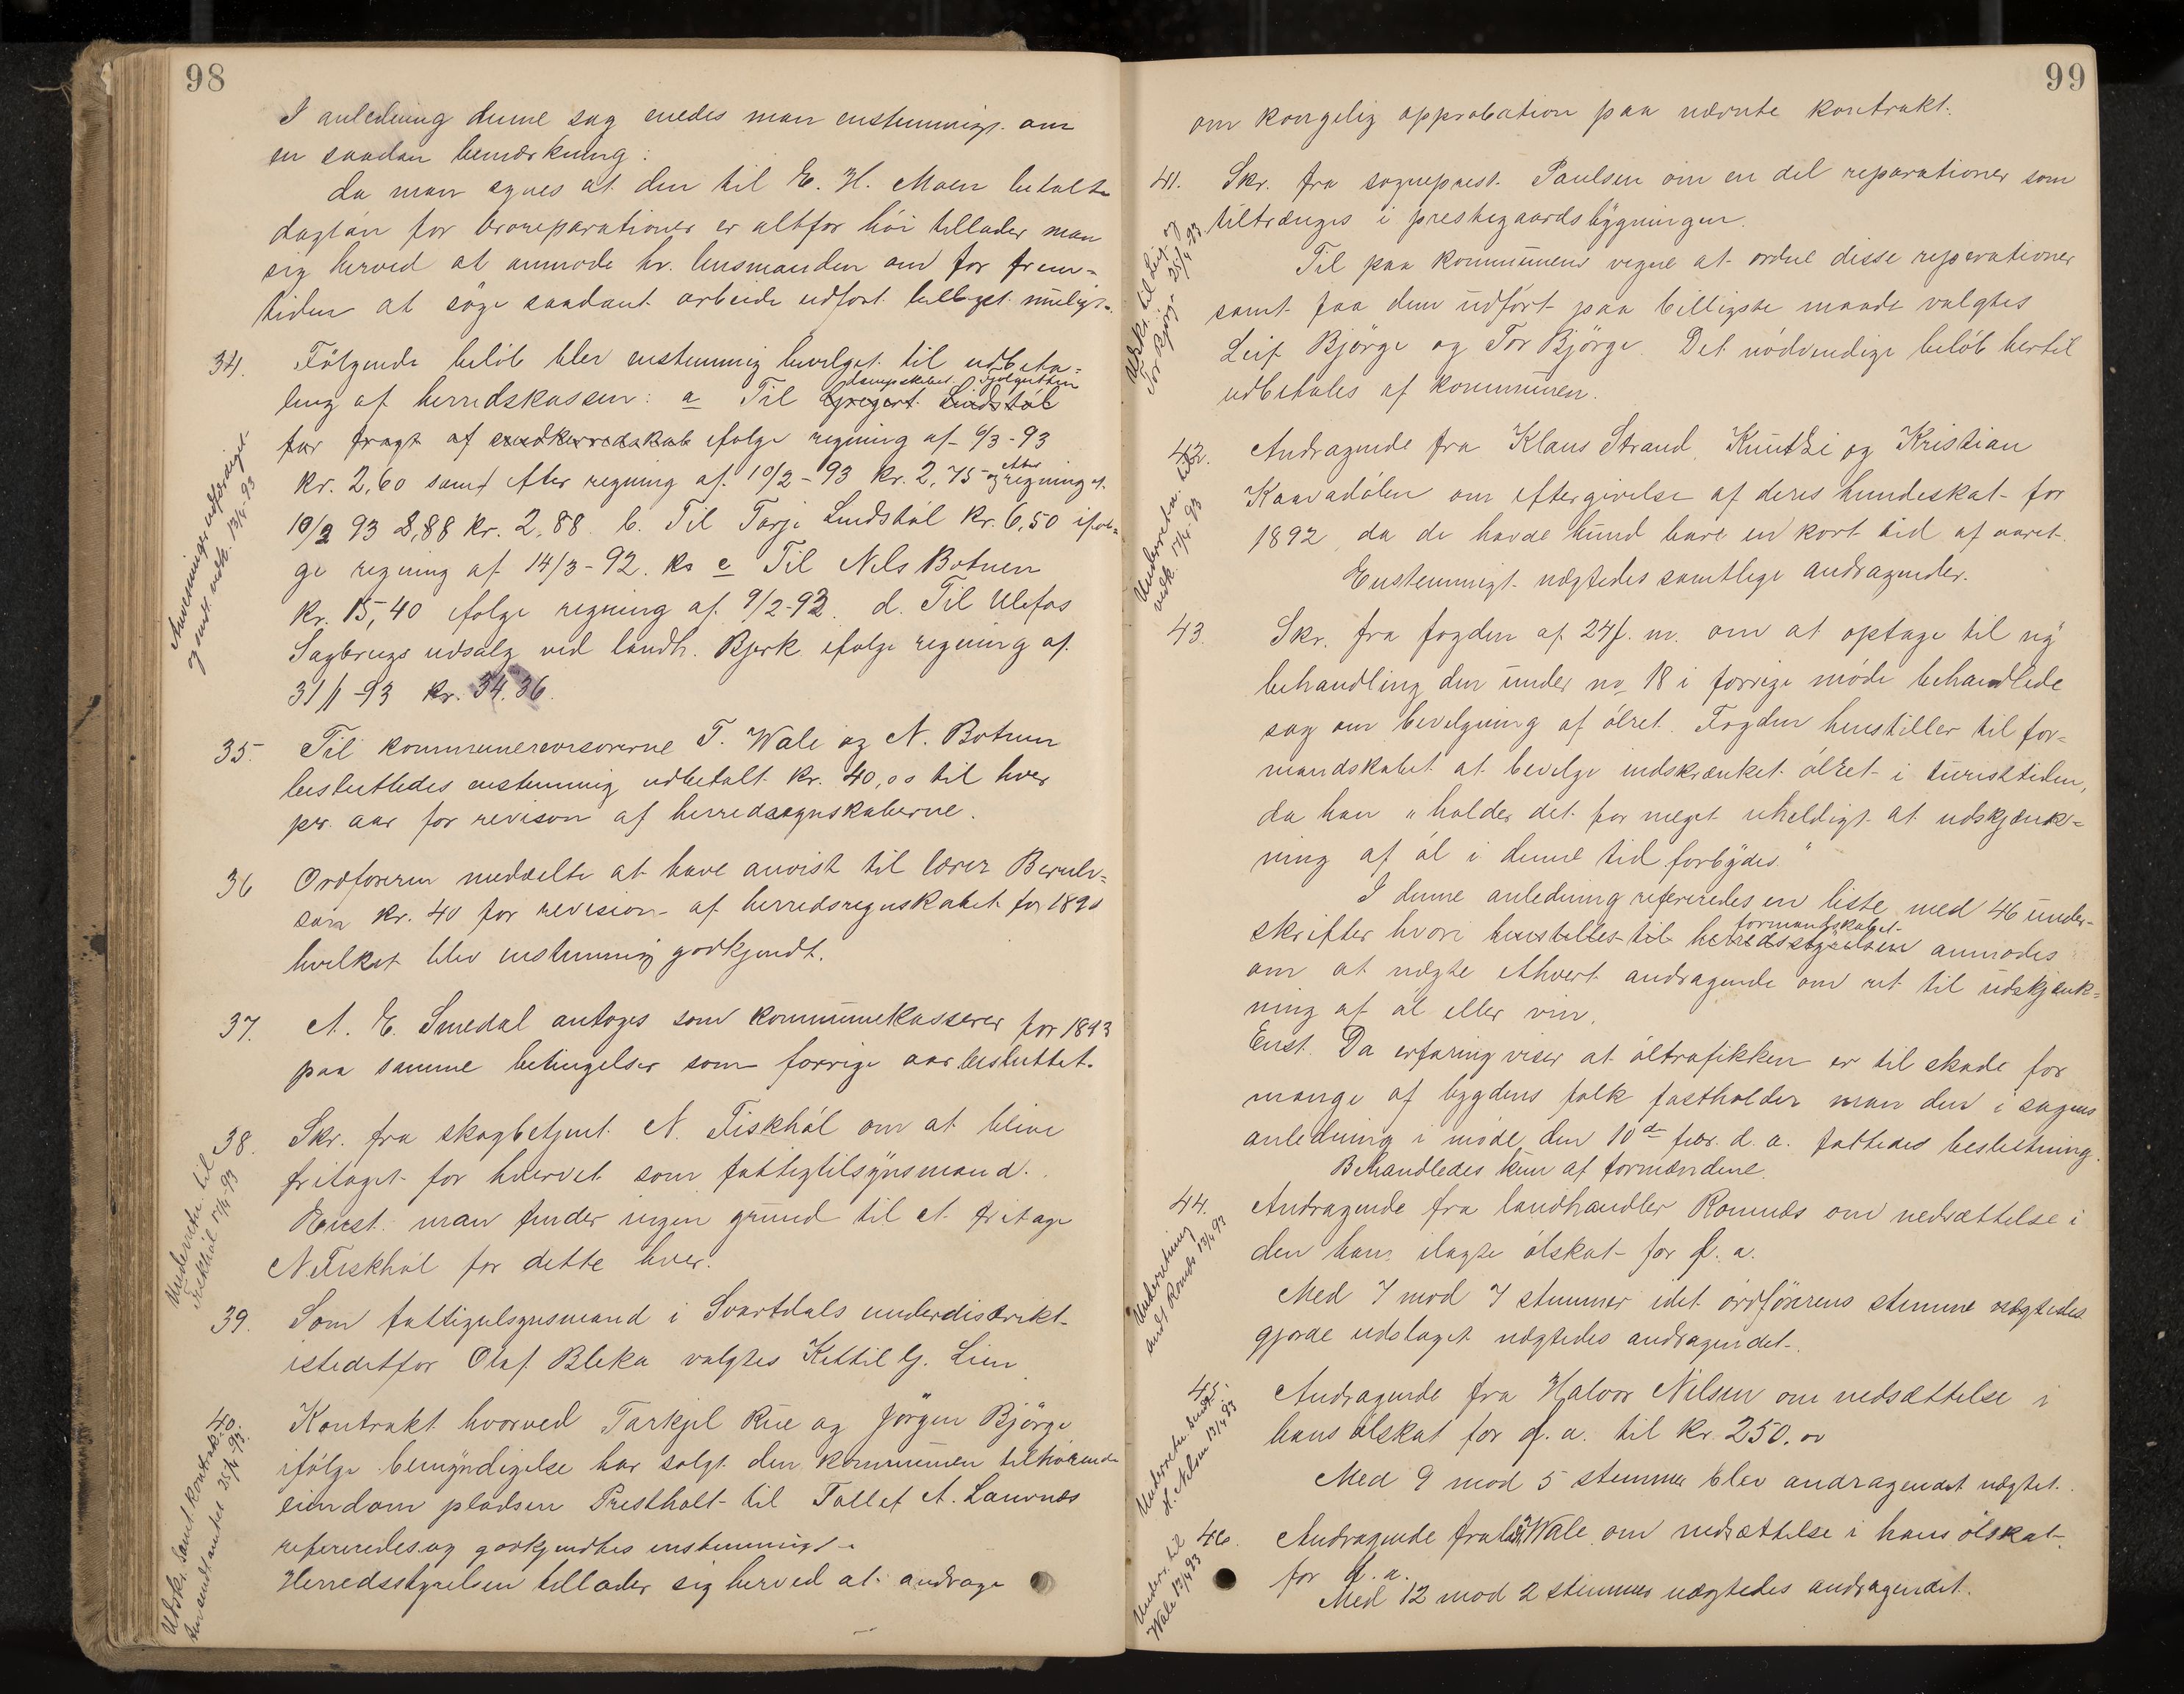 98
I anledning denne sag enedes man enstemmigt om
en saadan bemærkning:
Da man synes at den til E. H. Moen betalte
daglön for broreparationer er altfor höi tillader man
sig herved at anmode hr. lensmanden om for frem-
tiden at söge saadant arbeide udfört billigst muligt.
34. Fölgende belöb blev enstemmig bevilget til udbeta-
ling af herredskassen: a Til dampskibet Fjolguten
for fragt af ifölge regning af 6/3-93
kr. 2,60 samt efter regning af 10/2-93 kr. 2,75 og efter regning af
10/2 93 2,88 kr. 2,88. b. Til Tarje Lindstöl kr. 6,50 iföl-
ge regning af 14/3-92. c Til Nels Botnen
kr. 15,40 ifölge regning af 9/2-93. d. Til Ulefos
Sagbrugs udsalg ved landh. Bjerk ifölge regning af
31/1-93 kr. 34.36.
Anvisninger udfærdiget
og sendt vedk. 13/4-93
35. Til kommunerevisorerne T. Wale og N. Botnen
besluttedes enstemmig udbetalt kr. 40,00 til hver
pr. aar for revison af herredsregnskaberne.
36 Ordföreren meddelte at have anvist til lærer Berulv-
son kr. 40 for revision af herredsregnskabet for 1890
hvilket blev enstemmig godkjendt.
37. A. E. Smedal antoges som kommunekasserer for 1893
paa samme betingelser som forrige aar besluttet.
38. Skr. fra skogbetjent N. Fiskhöl om at blive
fritaget for hvervet som fattigtilsynsmand.
Enst. man finder ingen grund til at fritage
N Fiskhöl for dette hver.
Underretn. til
Fiskhöl 17/4-93
39. Som fattigtilsynsmand i Svartdals underdistrikt
istedetfor Olaf Bleka valgtes Kettil G. Lien
40. Kontrakt hvorved Tarkjel Rue og Jörgen Björge
ifölge bemyndigelse har solgt den kommunen tilhörende
eiendom pladsen Prestholt til Tollef A. Lauvnes
refereredes og godkjendtes enstemmigt.
Herredsstyrelsen tillader sig herved at andrage
Udskr. samt kontrak-
ten sendt amtet 25/4-93.
99
om kongelig approbation paa nævnte kontrakt.
41. Skr. fra sogneprest Paulsen om en del reparationer som
tiltrænges i prestegaardsbygningen.
Til paa kommunens vegne at ordne disse reparationer
samt faa dem udfört paa billigste maade valgtes
Leif Björge og Tor Björge. Det nödvendige belöb hertil
udbetales af kommunen.
Udskr. til Leif og
Tor Björge 25/4-93.
42. Andragende fra Klaus Strand, og Kristian
Kaavadalen om eftergivelse af deres hundeskat for
1892, da de havde hund bare en kort tid af aaret.
Enstemmigt nægtedes samtlige andragender.
Underretn. til
vedk. 17/4-93
43. Skr. fra fogden af 24 f. m. om at optage til ny
behandling den under no 18 i forrige möde behandlede
sag om bevilgning af ölret. Fogden henstiller til for-
mandskabet at bevilge indskrænket ölret i turisttiden,
da han "holder det for meget uheldigt at udskjænk-
ning af öl i denne tid forbydes."
I denne anledning refereredes en liste med 46 under-
skrifter hvori henstilles til herredsstyrelsen formandskabet anmodes
om at nægte ethvert andragende om ret til udskjænk-
ning af öl eller vin.
Enst. Da erfaring viser at öltrafikken er til skade for
mange af bygdens folk fastholder man den i sagens
anledning i möde den 10de febr. d. a. fattede beslutning.
Behandledes kun af formændene.
44. Andragende fra landhandler Romnes om nedsættelse i
den ham ilagte ölskat for f. a.
Med 7 mod 7 stemmer idet ordförerens stemme nægtedes
gjorde udslaget nægtedes andragendet.
Underretning
sendt Romnes 13/4 93
45. Andragende fra Halvor Nilsen om nedsættelse i
hans ölskat for f. a. til kr. 250.00
Med 9 mod 5 stemmer blev andragendet nægtet.
Underretn. sendt
H. Nilsen 13/4 93
46. Andragende fra Wale om nedsættelse i hans ölskat
for f. a.
Med 12 mod 2 stemmer nægtedes andragendet.
Underr. til
Wale 13/4 93